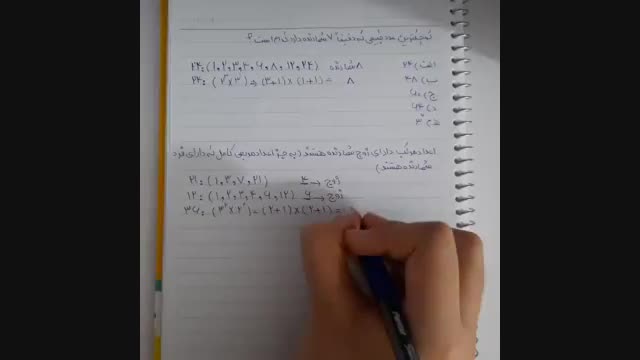 کوچکترین عدد طبیعی که دقیقاً ۷ شمارنده دارد کدام است؟
الف) ۲۴
۲۴: (۱,۲,۳,۴,۶,۸,۱۲,۲۴) ۸ شمارنده
ب) ۴۸
۲۴: (۲³×۳¹) = (۳+۱)×(۱+۱) = ۸
ج)
د) ۶۴
اعداد مرکب دارای زوج شمارنده هستند (به جز اعداد مربع کامل که دارای فرد
شمارنده هستند)
۲۱: (۱,۳,۷,۲۱) ۴ → زوج
۱۲: (۱,۲,۳,۴,۶,۱۲) ۶ → زوج
۳۶: (۳²×۲²) = (۲+۱)×(۲+۱) =